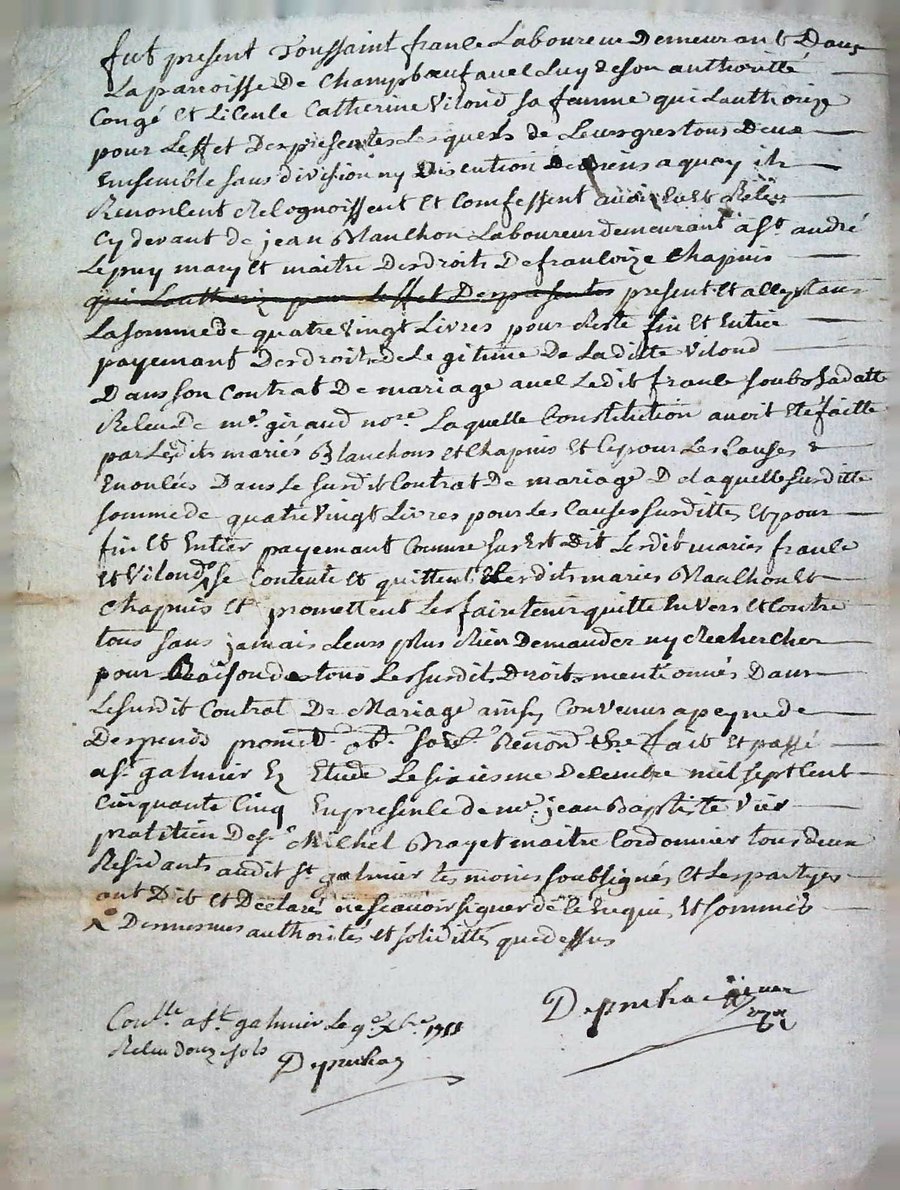 fut present Toussaint france Laboureur Demeurant Dans
La parroisse De Champbœuf avec Luy de son authoritté
Congé et Licence Catherine Vilond sa femme qui Lauthorize
pour Leffet Des presentes Lesquels de Leurs gres tous Deux
Ensemble sans division ny Discution De Biens a quoy ils
Renoncent Recognoissent et Comfessent avoir Eu et Receu
Cy devant de jean Blanchon Laboureur demeurant a st. andré
Lepuy mary et maitre Des droits De francoize Chapuis
qui Lauthorize pour Leffet Des presentes present et acceptant
La somme de quatre vingt Livres pour Reste fin et Entier
payemant Des droits de Legitime De La ditte Vilond
Dans son Contrat De mariage avec Ledit france soubs sa datte
Receu de me. giraud nore. Laquelle Constitution avoit Eté faitte
par Lesdits mariés Blanchons et Chapuis et Ce pour Les Causes
Enoncées Dans Le surdit Contrat De mariage De laquelle surditte
somme de quatre vingt Livres pour Les Causes surdittes et pour
fin et Entier payemant Comme sus Est Dit Lesdit mariés france
et Vilond se Contente et quittent Lesdits mariés Blanchon et
Chapuis et promettent Les faire tenir quitte Envers et Contre
tous sans jamais Leurs plus Rien Demander ny Rechercher
pour Raison de tous Les surdits Droits mentionnés Dans
Le surdit Contrat De Mariage ainsy Convenus a peyne de
Despends promet. ob. soum. Renond. fait et passé
a st. galmier Ez Etude Le sixiesme Decembre mil sept Cent
Cinquante Cinq En presence de me. jean Baptiste Vier
pratitien De sr. Michel Brayet maitre Cordonnier tous deux
Residants audit st. galmier temoins soubsignés et Les partyes
ont Dit et Declaré ne scavoir signer de Ce Enquis et sommés
Des mesmes authorités et soliditté que dessus
Depuchac
Conlle. a st. galmier Le 9e. Xbre. 1755
Receu douze sols
Depuchac